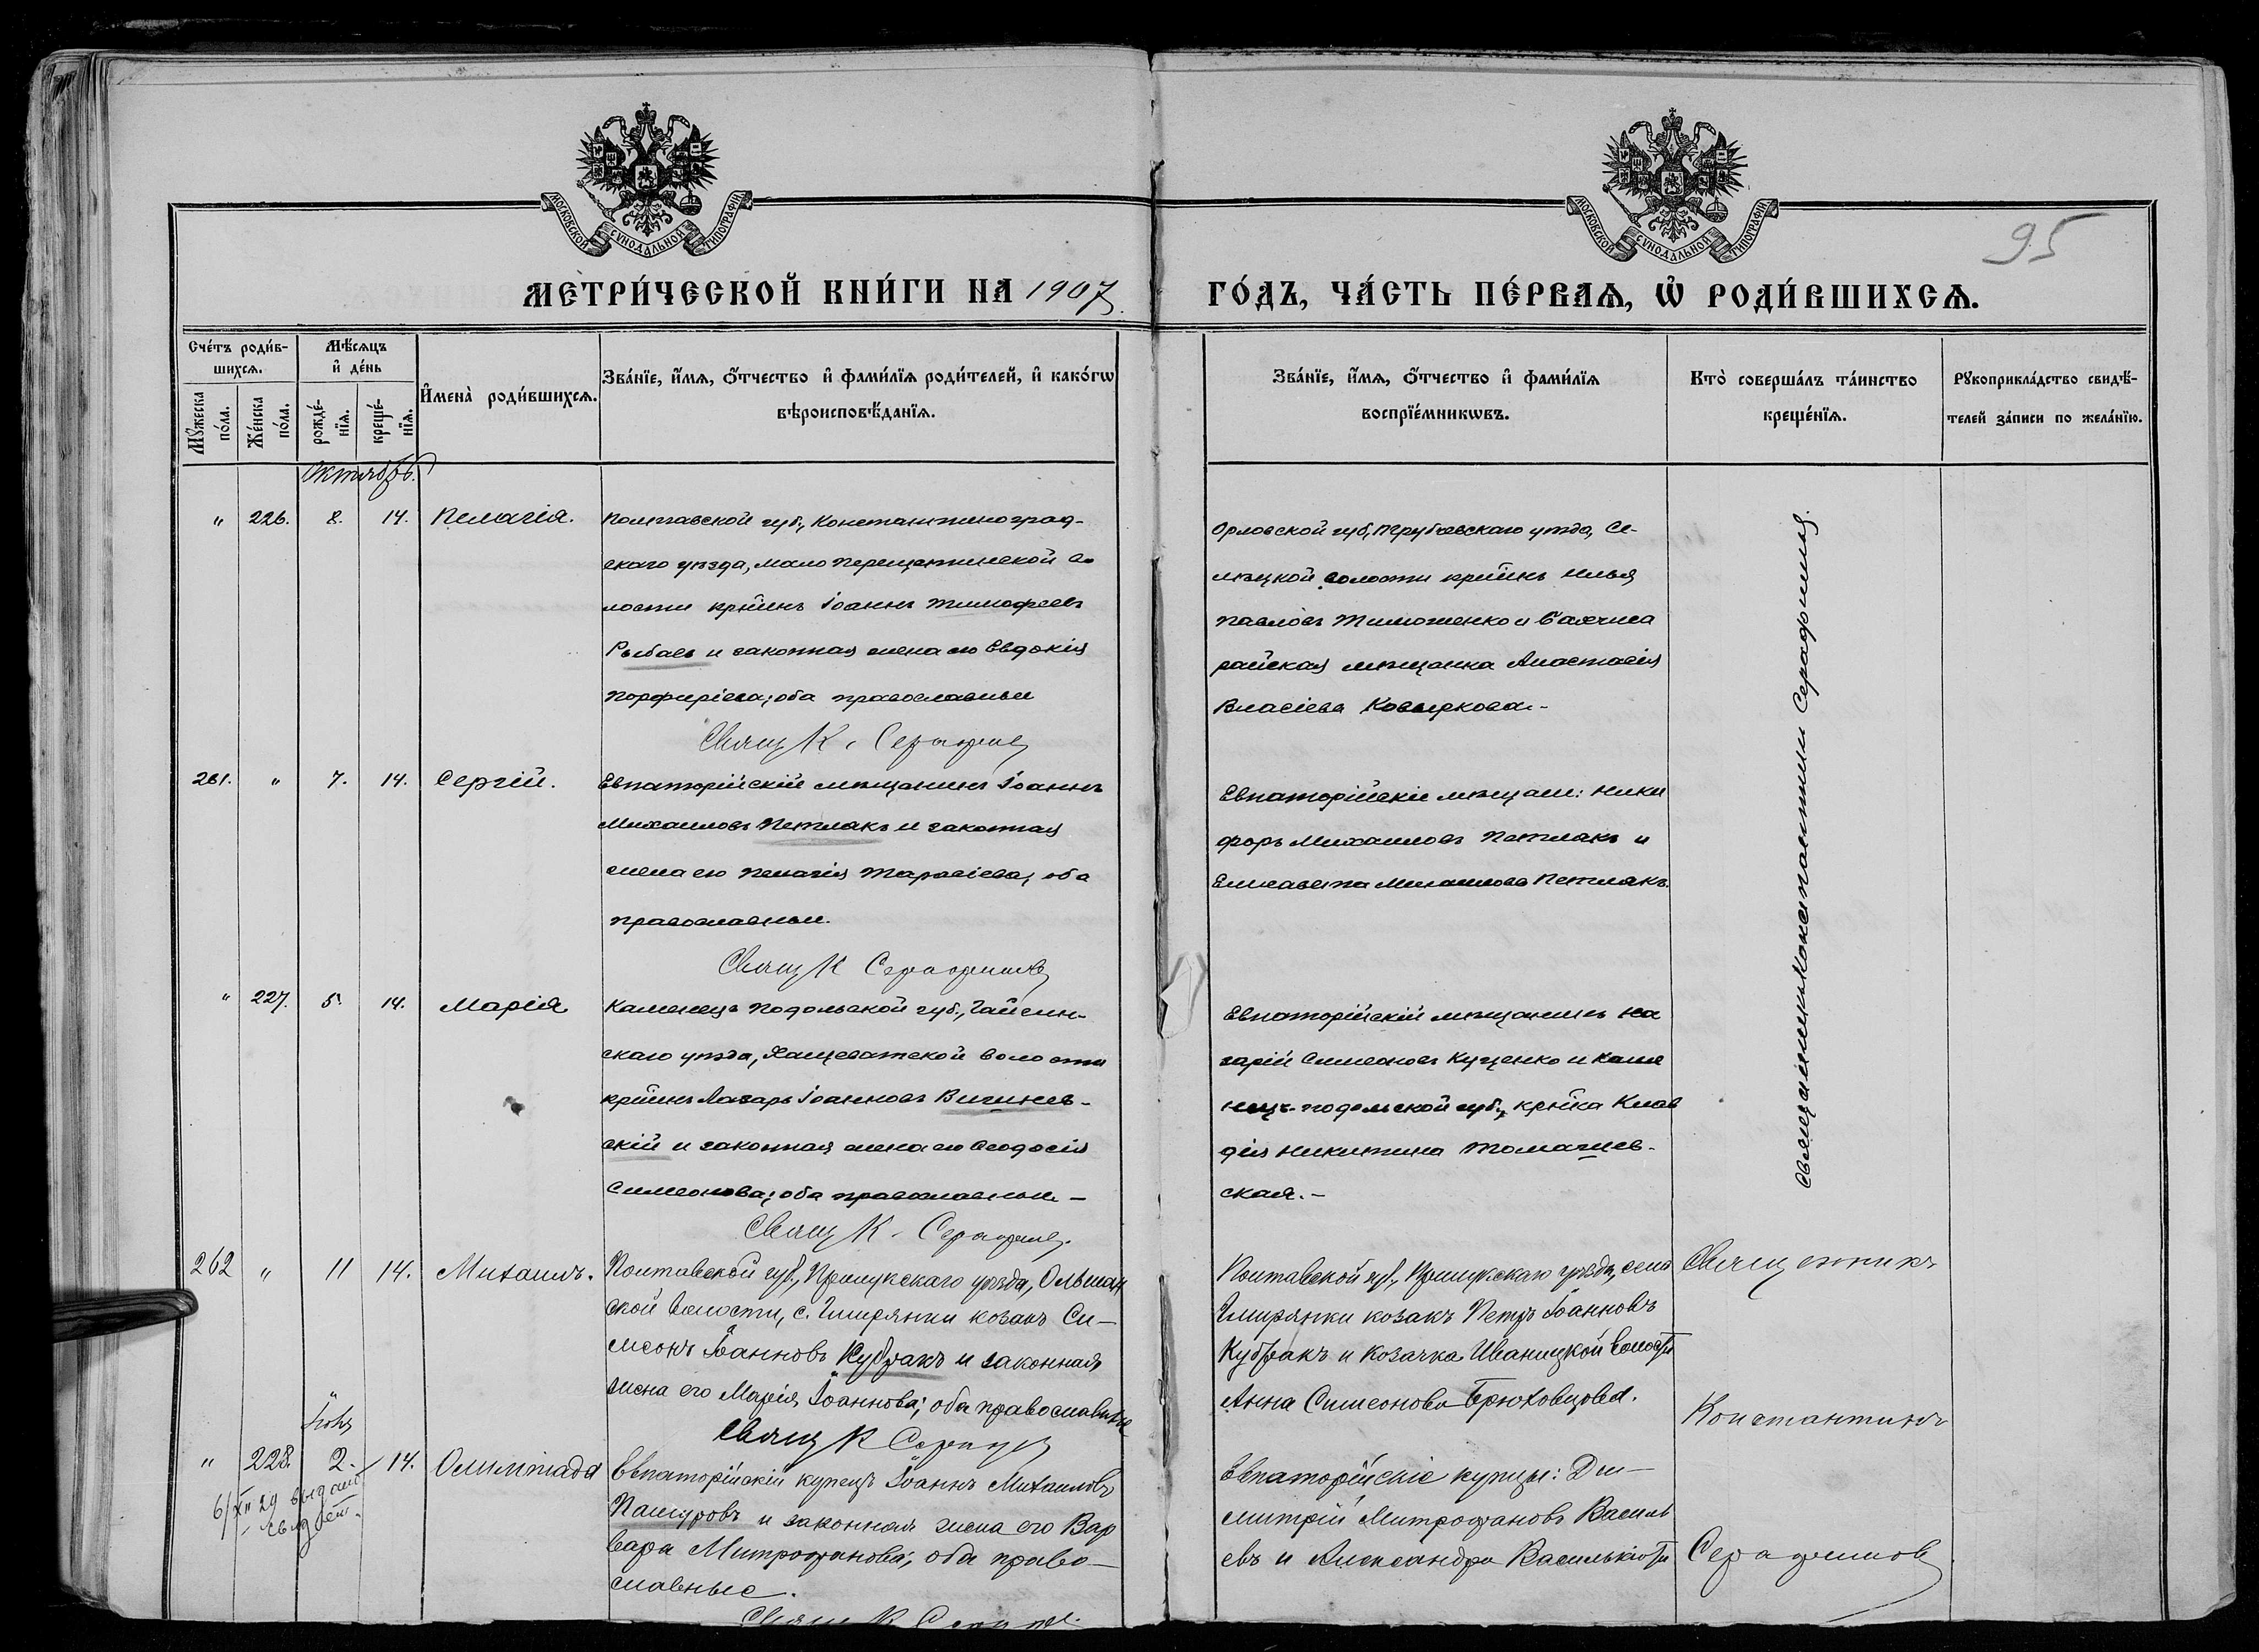 МОСКОВСКОЙ СѴНОДАЛЬНОЙ ТИПОГРАФІИ
МОСКОВСКОЙ СѴНОДАЛЬНОЙ ТИПОГРАФІИ
95
МЕТРИ́ЧЕСКОЙ КНИ́ГИ НА 1907
ГО́ДЪ, ЧА́СТЬ ПЕ́РВАѦ, Ѡ҆ РОДИ́ВШИХСѦ.
Сче́тъ роди́в-
шихсѧ.
Мѣ́сѧцъ
и҆ де́нь
Мꙋ́жеска
по́ла.
Же́нска
по́ла.
рожде́-
нїѧ.
креще́-
нїѧ.
И҆мена̀ роди́вшихсѧ.
Зва́нїе, и҆́мѧ, ѻ҆́тчество и҆ фами́лїѧ роди́телей, и҆ како́гѡ
вѣроисповѣ́данїѧ.
Зва́нїе, и҆́мѧ, ѻ҆́тчество и҆ фами́лїѧ
воспрїе́мникѡвъ.
Кто̀ соверша́лъ та́инство
креще́нїѧ.
Рꙋкоприкла́дство свидѣ́-
телей за́писи по жела́нїю.
Октябрь.
" 226. 8. 14. Пелагія.
Полтавской губ., Константиноград-
скаго уѣзда, мало Перещепинской во
лости крѣинъ Іоаннъ Тимофеевъ
Рыбаев и законная жена его Евдокія
Порфиріева; оба православные
Свящ К. Серафимов
Орловской губ., Трубчевскаго уѣзда, Се-
лецкой волости крѣинъ Илья
Павловъ Тимошенко и Бахчиса
райская мѣщанка Анастасія
Власіева Ковыркова.-
261. " 7. 14. Сергій.
Евпаторійскій мѣщанинъ Іоаннъ
Михаиловъ Петлякъ и законная
жена его Пелагія Тарасіева; оба
православные.
Свящ К Серафимов
Евпаторійскіе мѣщане: Ники
форъ Михаиловъ Петлякъ и
Елисавета Михаилова Петлякъ.
" 227. 5. 14. Марія
Каменецъ Подольской губ., Гайсин-
скаго уѣзда, Хащеватской волости
крѣинъ Лазарь Іоанновъ Вигинев-
скій и законная жена его Ѳеодосія
Симеонова; оба православные –
Свящ К. Серафимов.
Евпаторійскій мѣщанинъ На
зарій Симеоновъ Куценко и Каме
нецъ-подольской губ., крѣйка Клав
дія Никитина Томачев-
ская.–
Священникъ Константинъ Серафимов.
262 " 11 14. Михаилъ.
Полтавской губ., Прилукскаго уѣзда, Ольшан
ской волости, с. Гмирянки козакъ Си-
меонъ Іоанновъ Кубракъ и законная
жена его Марія Іоаннова; оба православные
Свящ К Серафимов
Полтавской губ., Прилукскаго уѣзда, села
Гмирянки козакъ Петръ Іоанновъ
Кубракъ и козачка Иваницкой волости
Анна Симеонова Брюховцова.
Священникъ
Константинъ
Серафимов
" 228. 2. 14. Олимпіада
6/XII 29 выдано
свидет.
Евпаторійскій купецъ Іоаннъ Михаиловъ
Пашуровъ и законная жена его Вар
вара Митрофанова; оба право-
славные.
Евпаторійскіе купцы: Ди-
митрій Митрофановъ Василь
евъ и Александра